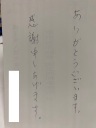 ありがとうございます。
感謝申しあげます。